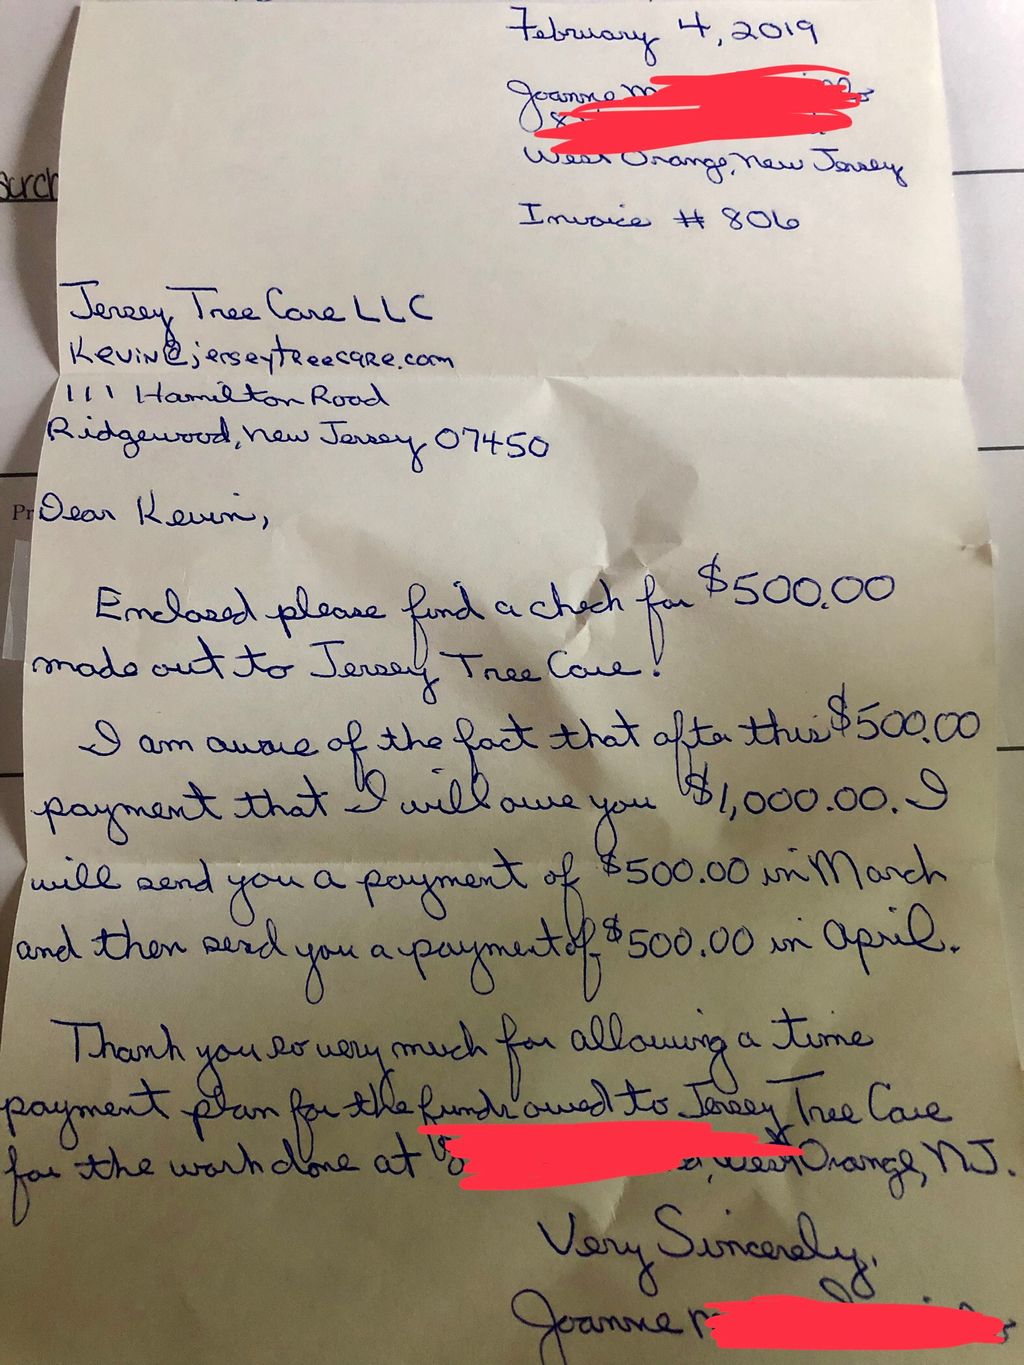 February 4, 2019
Joanne M
West Orange, New Jersey
Invoice # 806
surch
Jersey Tree Care LLC
Kevin@jerseytreecare.com
111 Hamilton Road
Ridgewood, New Jersey 07450
Pr
Dear Kevin,
Enclosed please find a check for $500.00
made out to Jersey Tree Care!
I am aware of the fact that after this $500.00
payment that I will owe you $1,000.00. I
will send you a payment of $500.00 in March
and then send you a payment of $500.00 in April.
Thank you so very much for allowing a time
payment plan for the funds owed to Jersey Tree Care
for the work done at West Orange, NJ.
Very Sincerely,
Joanne